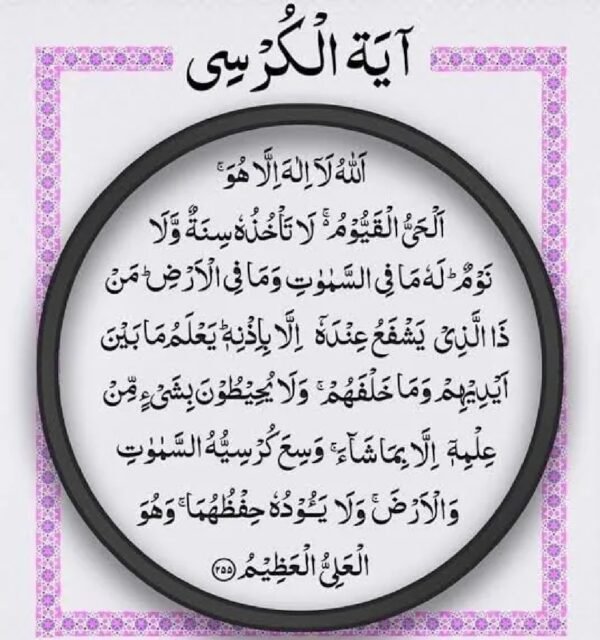 آيَة الْكُرْسِى
اَللّٰهُ لَاۤ اِلٰهَ اِلَّا هُوَ ۚ
اَلْحَىُّ الْقَيُّوْمُ ۚ لَا تَاْخُذُهٗ سِنَةٌ وَّلَا
نَوْمٌ ؕ لَهٗ مَا فِى السَّمٰوٰتِ وَمَا فِى الْاَرْضِ ؕ مَنْ
ذَا الَّذِىْ يَشْفَعُ عِنْدَهٗۤ اِلَّا بِاِذْنِهٖ ؕ يَعْلَمُ مَا بَيْنَ
اَيْدِيْهِمْ وَمَا خَلْفَهُمْ ۚ وَلَا يُحِيْطُوْنَ بِشَىْءٍ مِّنْ
عِلْمِهٖۤ اِلَّا بِمَا شَآءَ ۚ وَسِعَ كُرْسِيُّهُ السَّمٰوٰتِ
وَالْاَرْضَ ۚ وَلَا يَــُٔوْدُهٗ حِفْظُهُمَا ۚ وَهُوَ
الْعَلِىُّ الْعَظِيْمُ ﴿۲۵۵﴾